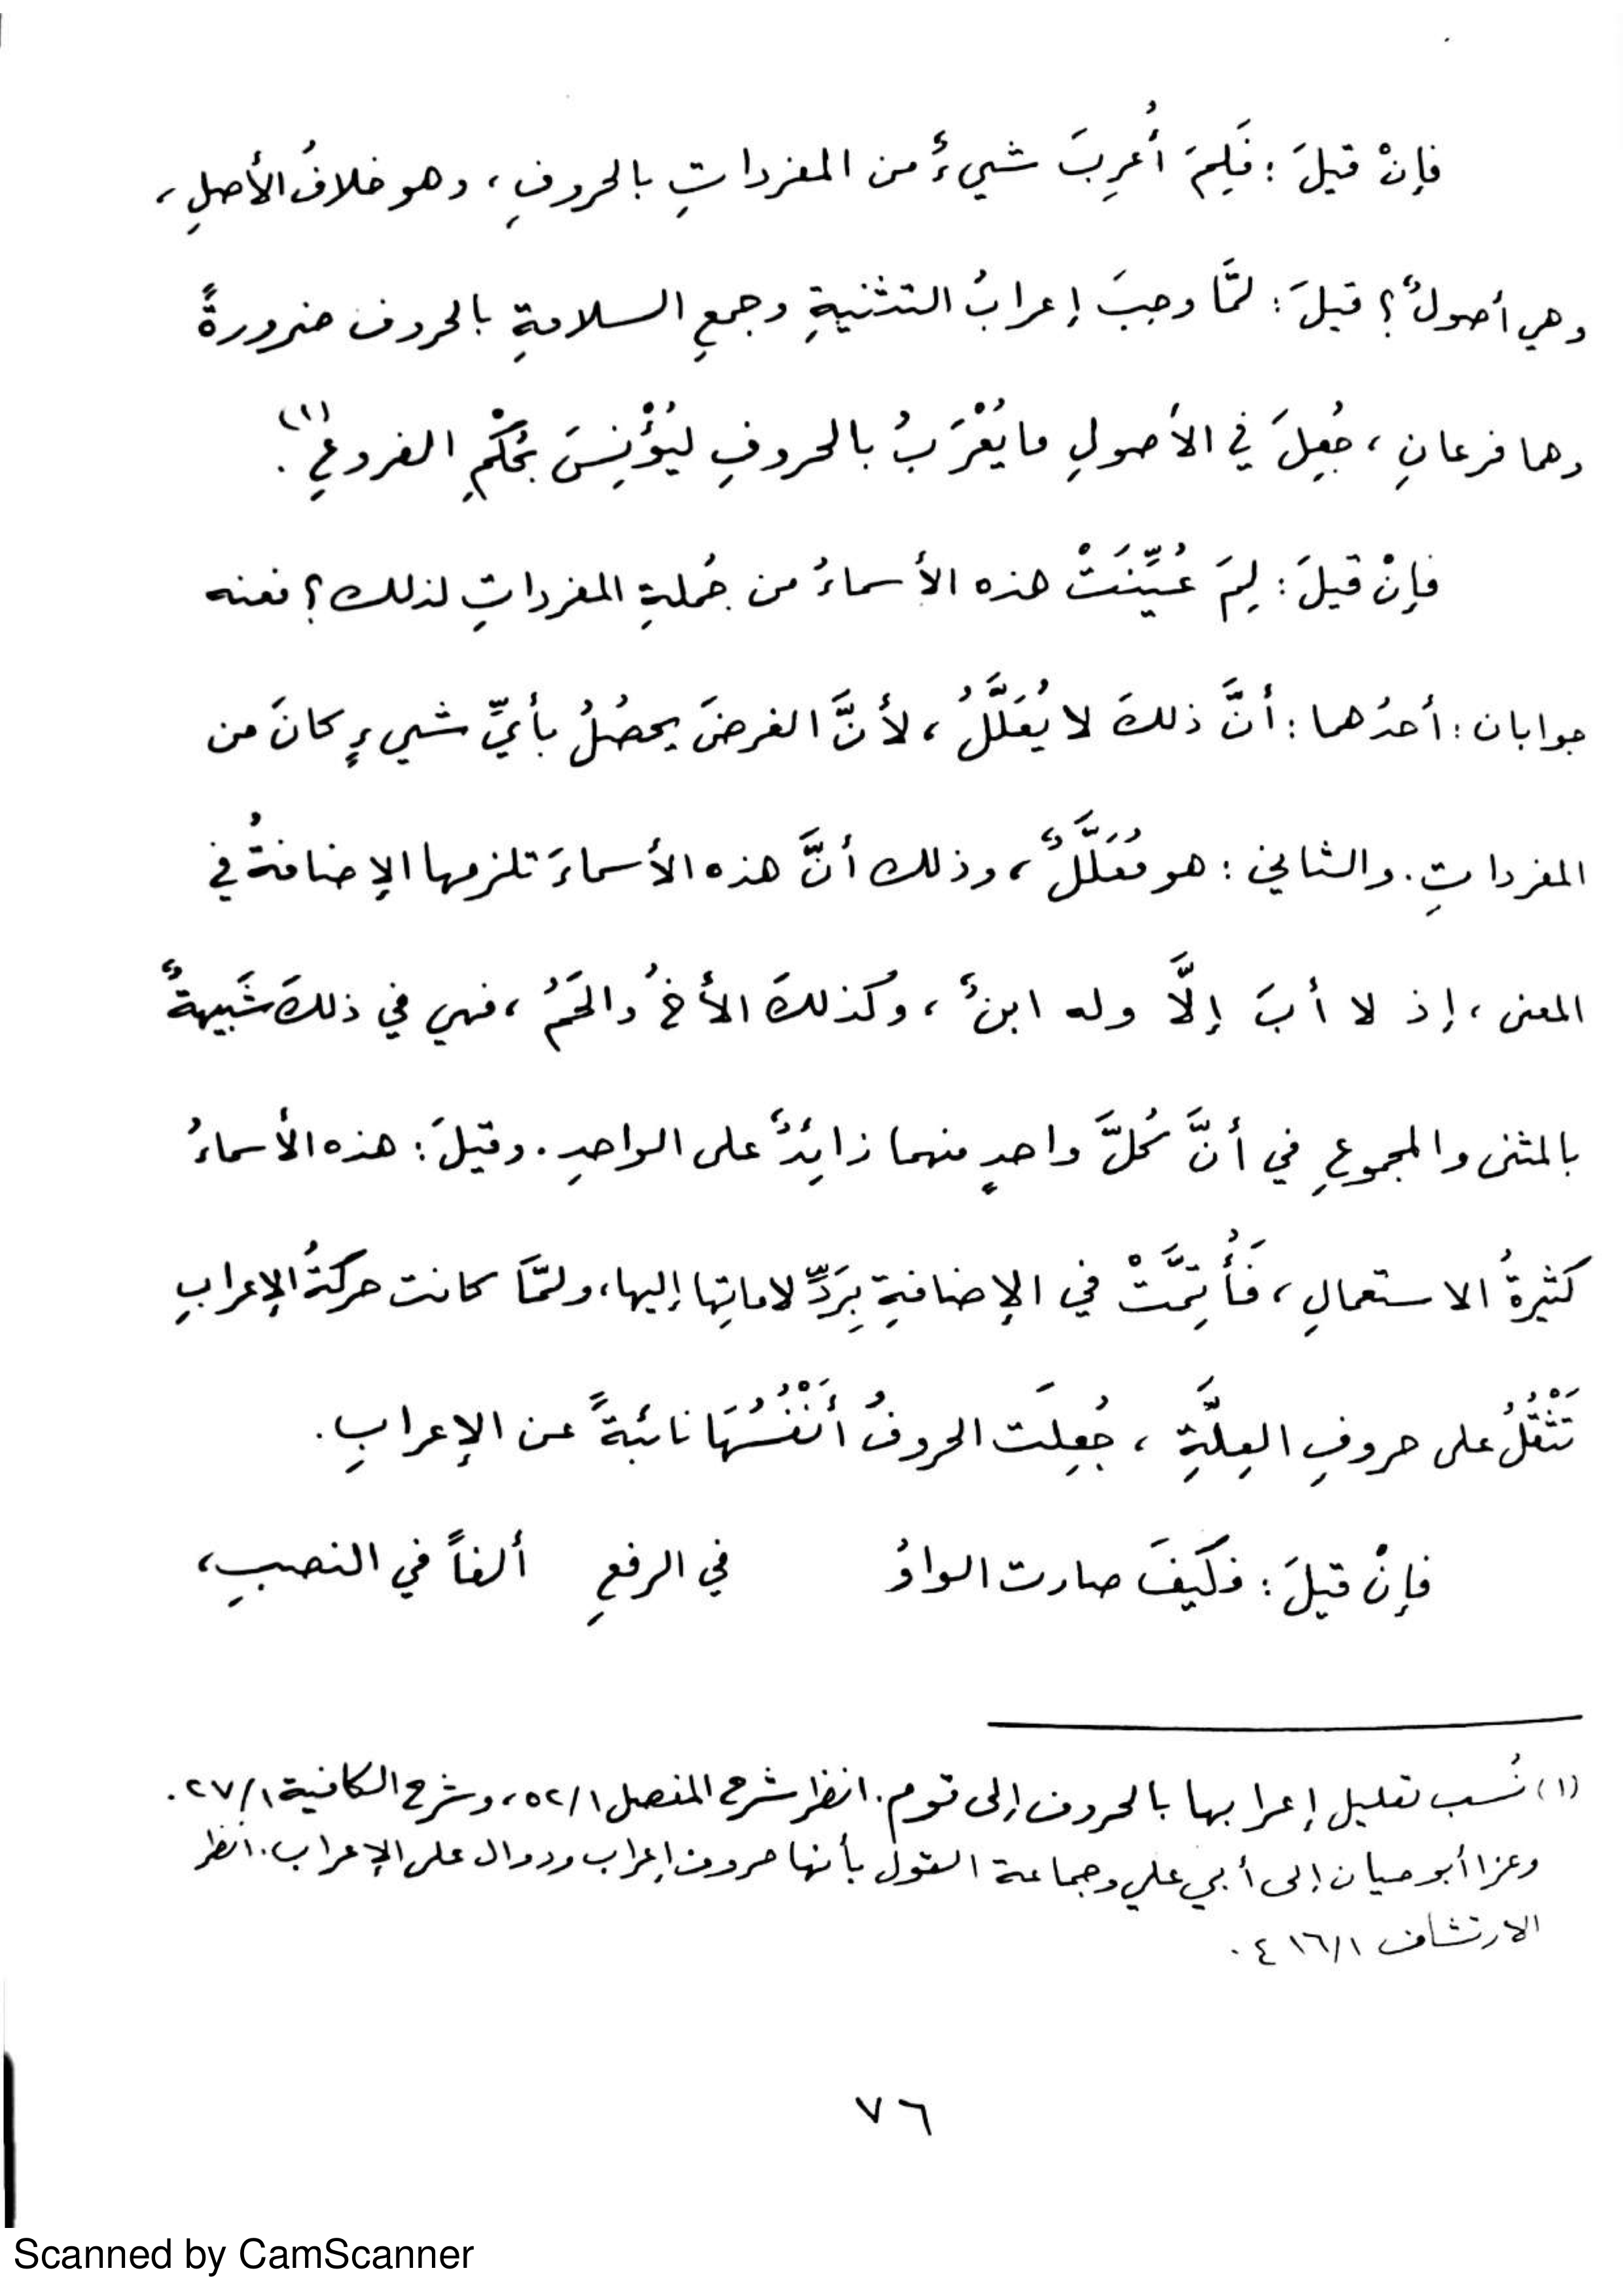 فإنْ قيلَ : فَلِمَ أُعرِبَ شيءٌ من المفرداتِ بالحروفِ ، وهو خلافُ الأصلِ ،
وهي أصولٌ ؟ قيلَ : لمَّا وجبَ إعرابُ التثنيةِ وجمعِ السلامةِ بالحروف ضرورةً
وهما فرعانِ ، جُعِلَ في الأصولِ ما يُعْرَبُ بالحروفِ ليُؤْنِسَ بحُكْمِ الفروعِ (١) .
فإنْ قيلَ : لِمَ عُيِّنَتْ هذه الأسماءُ من جُملةِ المفرداتِ لذلك ؟ فعنه
جوابان : أحدُهما : أنَّ ذلكَ لا يُعَلَّلُ ، لأنَّ الغرضَ يحصُلُ بأيِّ شيءٍ كانَ من
المفرداتِ . والثاني : هو مُعَلَّلٌ ، وذلك أنَّ هذه الأسماءَ تلزمها الإضافةُ في
المعنى ، إذ لا أبَ إلَّا وله ابنٌ ، وكذلكَ الأخُ والحَمُ ، فهي في ذلكَ شَبيهةٌ
بالمثنى والمجموعِ في أنَّ كُلَّ واحدٍ منهما زائِدٌ على الواحدِ . وقيلَ : هذه الأسماءُ
كثيرةُ الاستعمالِ ، فَأُتِمَّتْ في الإضافةِ بِرَدِّ لاماتِها إليها ، ولمَّا كانت حركةُ الإعرابِ
تَثْقُلُ على حروفِ العِلَّةِ ، جُعِلَت الحروفُ أَنْفُسُهَا نائبةً عن الإعرابِ .
فإنْ قيلَ : فكَيفَ صارت الواوُ في الرفعِ ألفاً في النصبِ ،
(١) نُسب تعليل إعرابها بالحروف إلى قوم . انظر شرح المفصل ٥٢/١ ، وشرح الكافية ٢٧/١ .
وعزا أبو حيان إلى أبي علي وجماعة القول بأنها حروف إعراب ودوال على الإعراب . انظر
الارتشاف ٤١٦/١ .
٧٦
Scanned by CamScanner